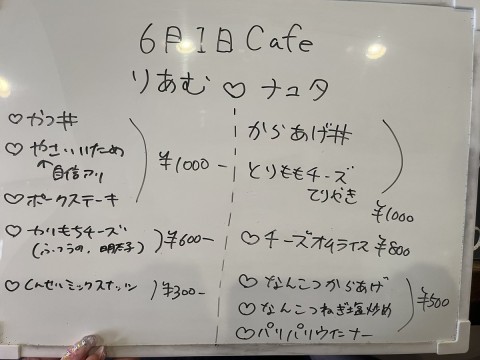 6月1日 Cafe
りあむ ♡ ナユタ
♡ かつ丼
♡ やさいいため
↑自信アリ
♡ ポークステーキ
¥1000-
♡ かりもちチーズ
(ふつうの、明太子)
¥600-
♡ しんせいミックスナッツ
¥300-
からあげ丼
とりももチーズ
てりやき
¥1000
♡ チーズオムライス ¥800
♡ なんこつからあげ
♡ なんこつねぎ塩炒め
♡ パリパリウインナー
¥500